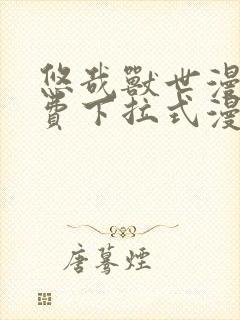 悠哉獸世漫
費下拉式漫
唐驀煙